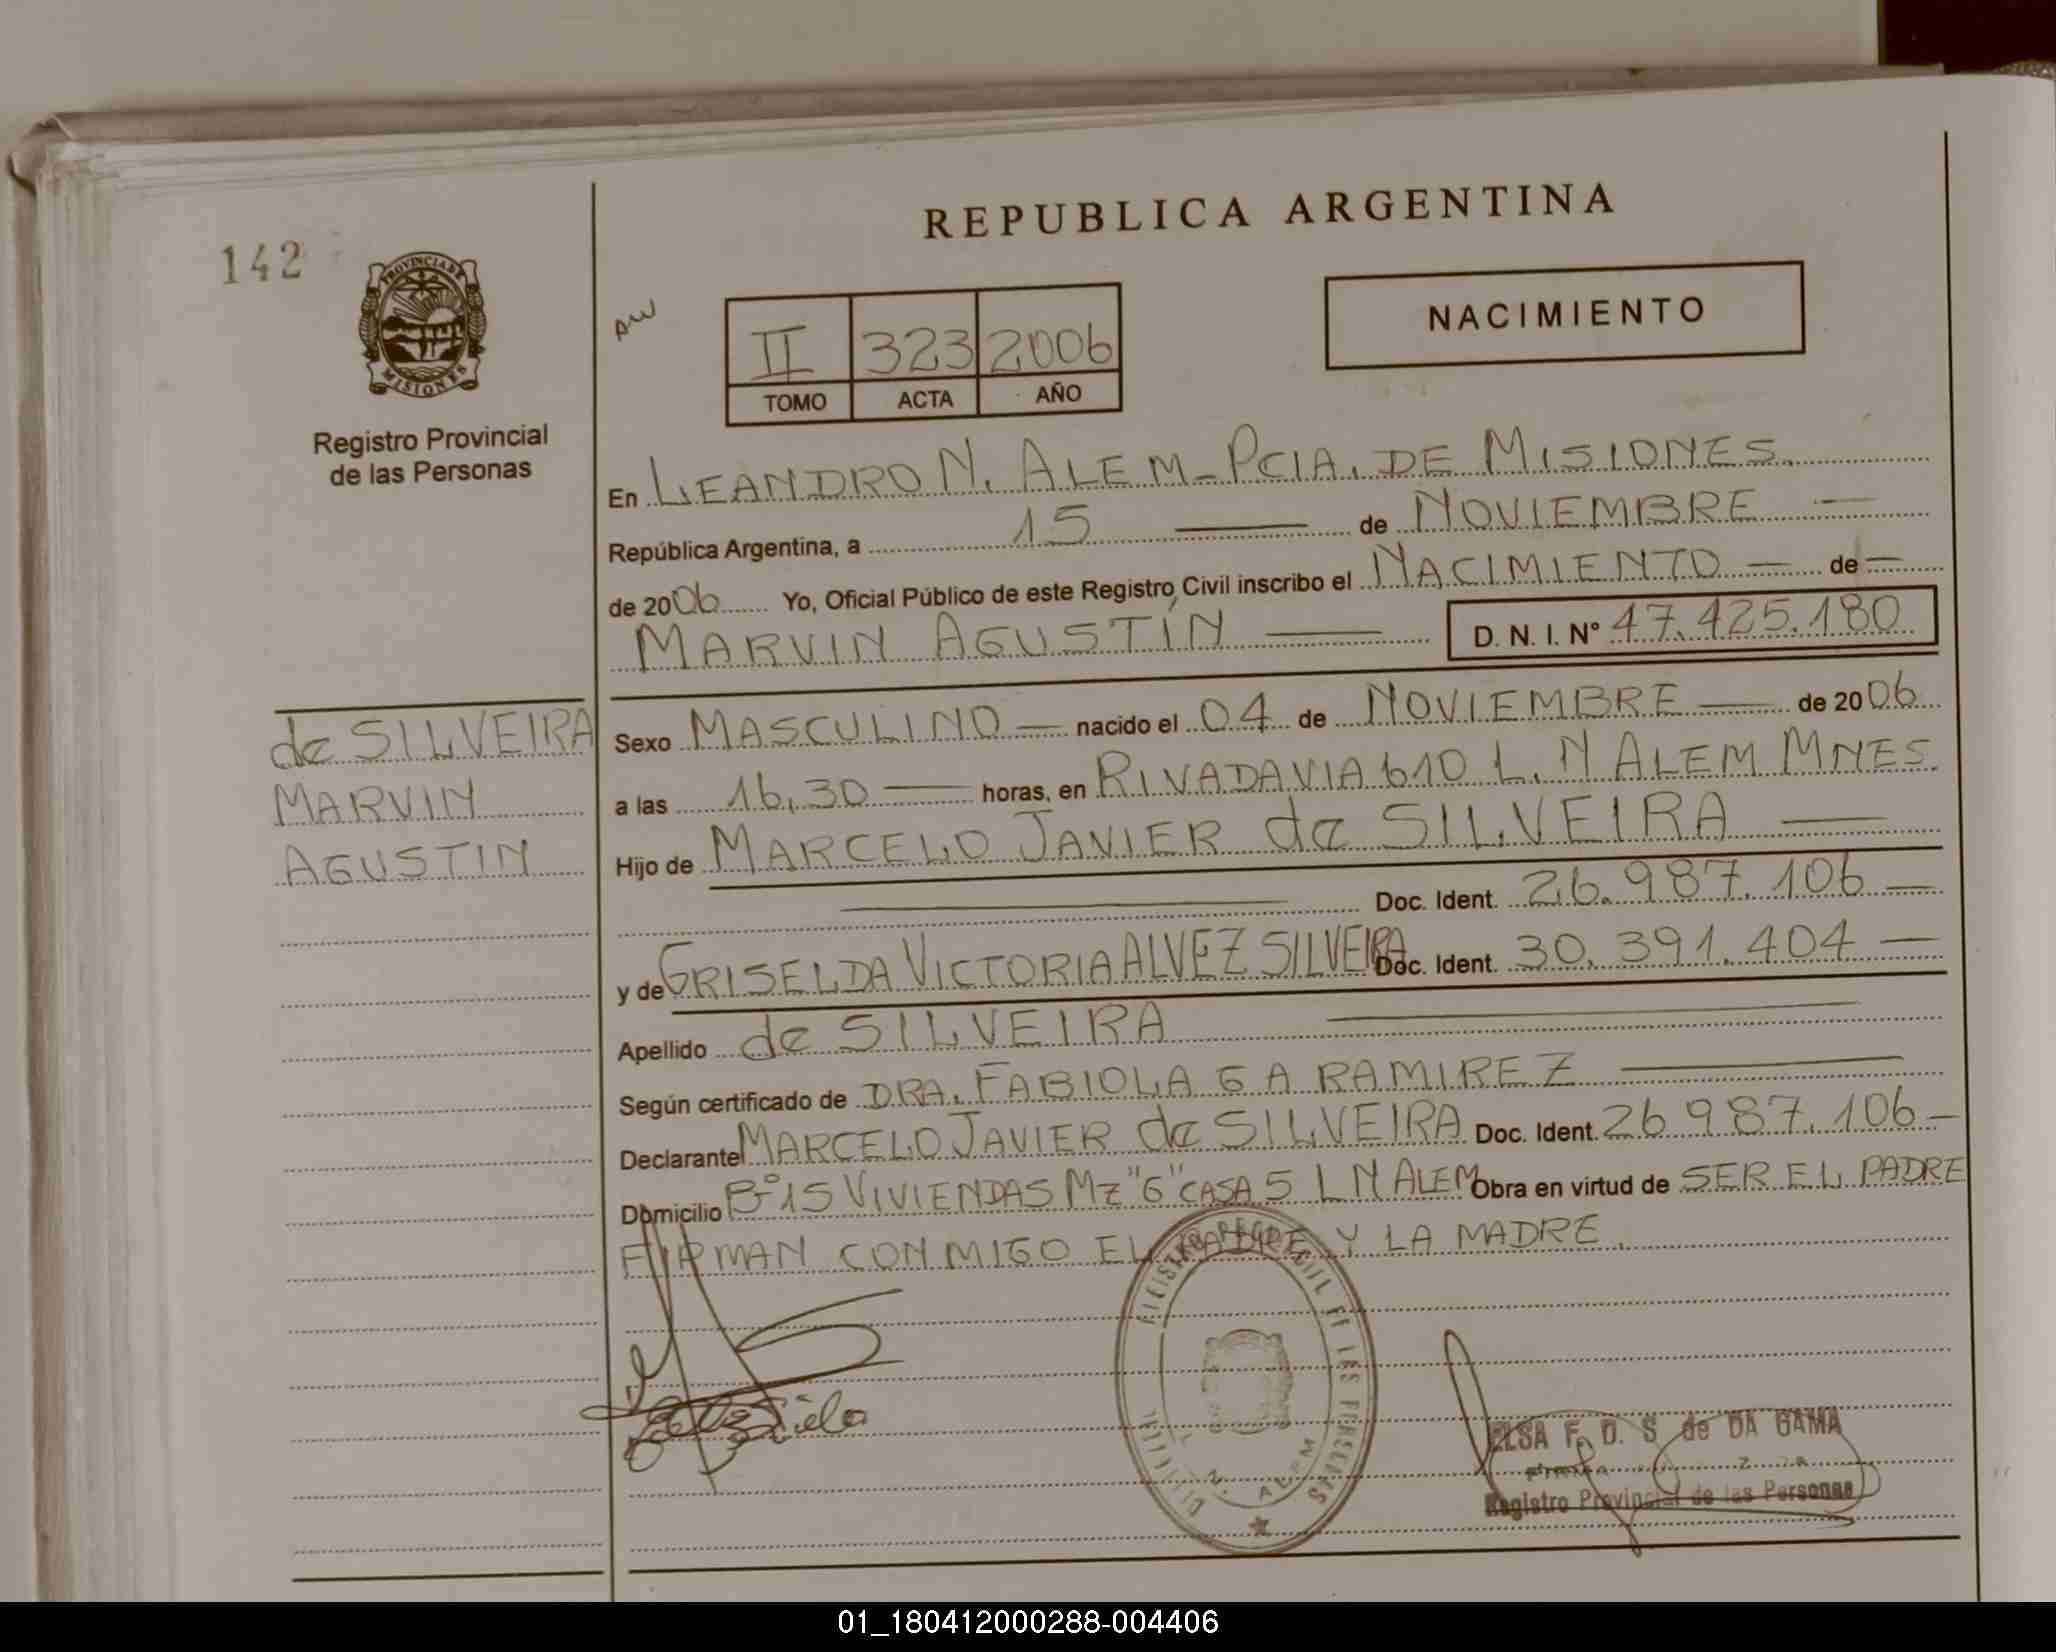 142
PROVINCIA DE
MISIONES
Registro Provincial
de las Personas
REPUBLICA ARGENTINA
AW
II 323 2006
TOMO ACTA AÑO
NACIMIENTO
En LEANDRO N. ALEM - PCIA. DE MISIONES.
República Argentina, a 15 — de NOVIEMBRE —
de 2006 Yo, Oficial Público de este Registro Civil inscribo el NACIMIENTO — de —
MARVIN AGUSTÍN — D. N. I. Nº 47.425.180
de SILVEIRA
MARVIN
AGUSTIN
Sexo MASCULINO — nacido el 04 de NOVIEMBRE — de 2006
a las 16,30 — horas, en RIVADAVIA 610 L. N ALEM MNES.
Hijo de MARCELO JAVIER de SILVEIRA —
— Doc. Ident. 26.987.106 —
y de GRISELDA VICTORIA ALVEZ SILVEIRA Doc. Ident. 30.391.404 —
Apellido de SILVEIRA —
Según certificado de DRA. FABIOLA G A RAMIREZ —
Declarante MARCELO JAVIER de SILVEIRA Doc. Ident. 26 987.106 —
Domicilio Bº 15 VIVIENDAS MZ "G" CASA 5 L N ALEM Obra en virtud de SER EL PADRE
FIRMAN CONMIGO EL PADRE Y LA MADRE.
REGISTRO PROVINCIAL DE LAS PERSONAS
L. N. ALEM
ELSA F. D. S. de DA GAMA
Registro Provincial de las Personas
01_180412000288-004406